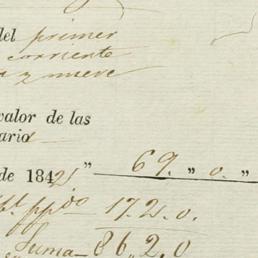 del primer
corriente
a y nueve
valor de las
ario
de 1842 " 69. " 0. "
17.2.0.
Suma 86,2.0